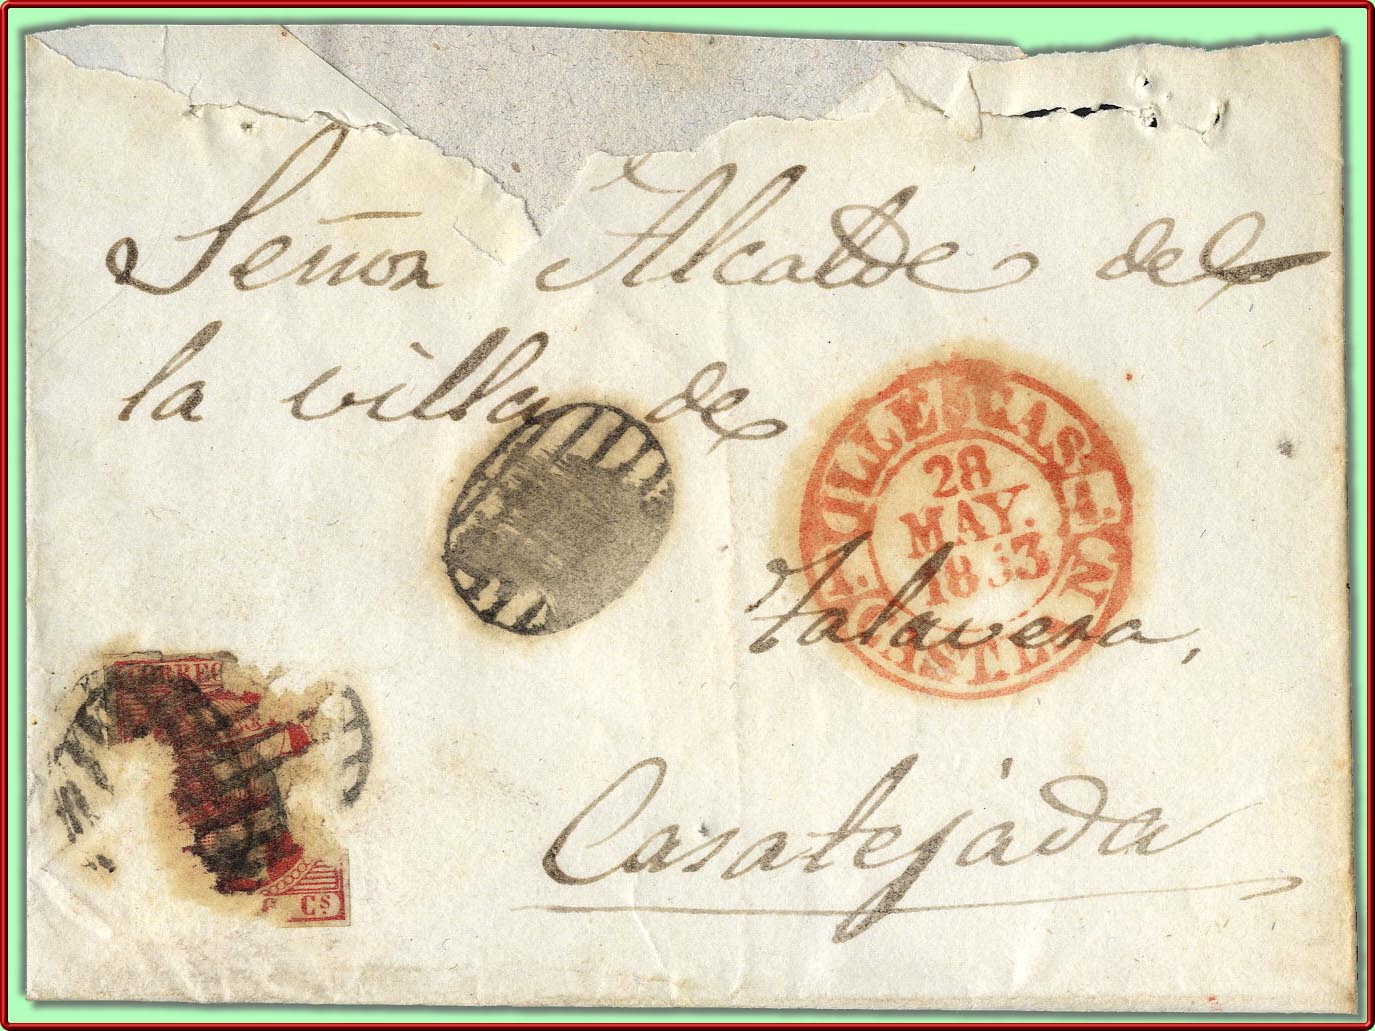 Señor Alcalde de
la villa de
28
MAY.
1853
Talavera,
Casatejada
CORREO
Cs